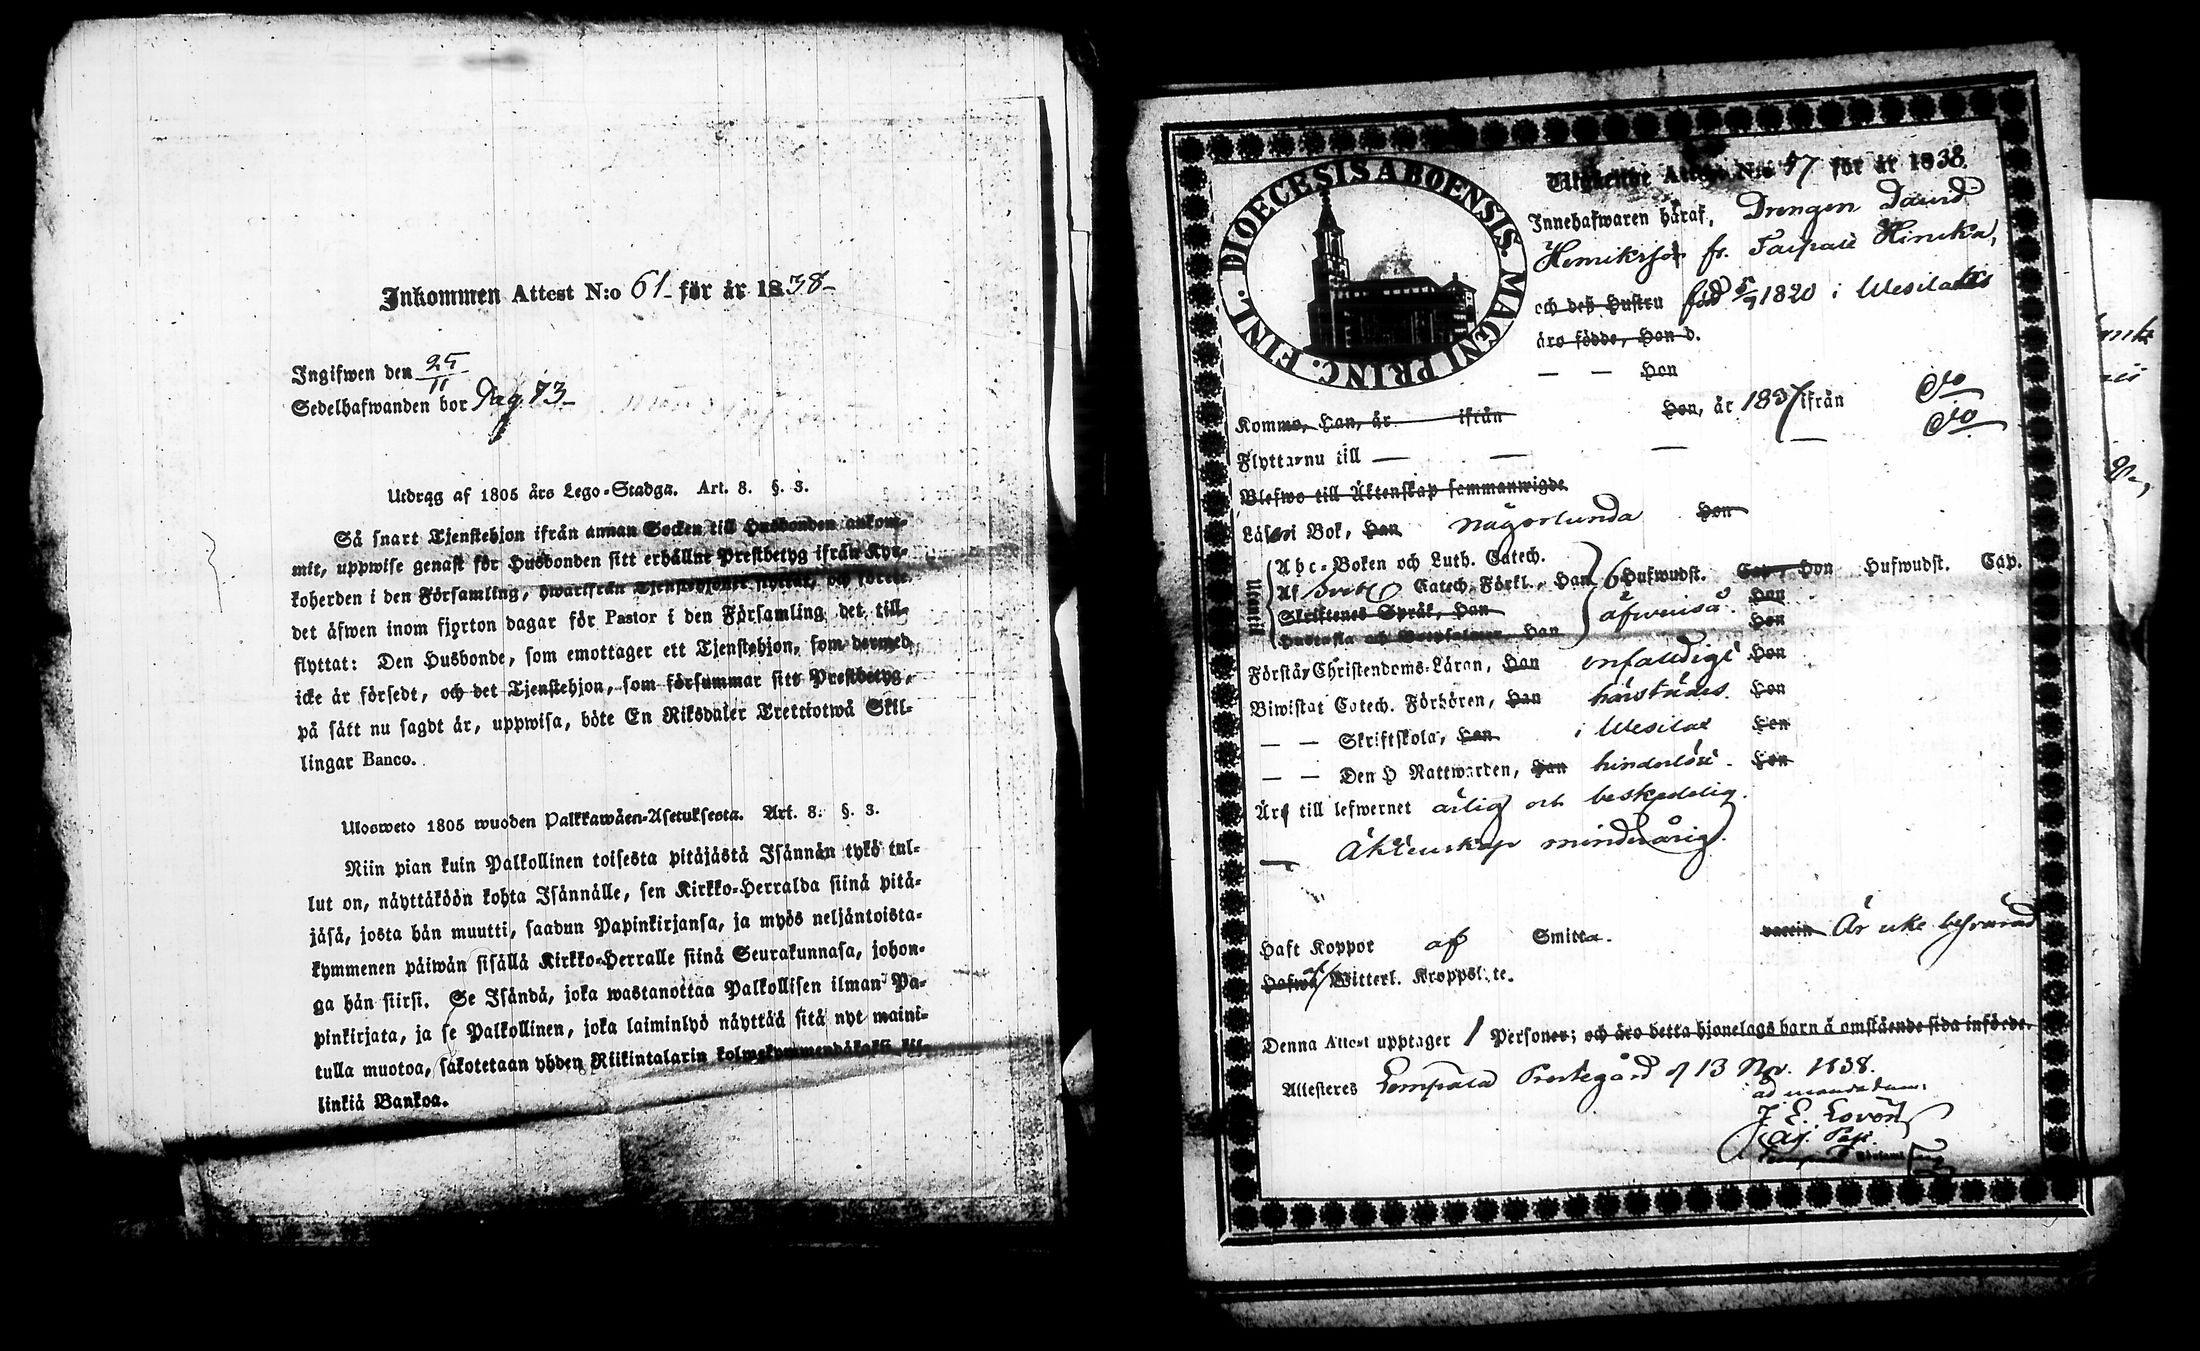 Inkommen Attest N:o 61 för år 1838
Ingifwen den 25/11
Sedelhafwanden bor Pag. 73
Utdrag af 1805 års Lego-Stadga. Art. 8. §. 3.
Så snart Tjenstehjon ifrån annan Socken till Husbonden ankom-
mit, uppwise genast för Husbonden sitt erhållne Prestbetyg ifrån Kyr-
koherden i den Församling, hwarifrån Tjenstehjonet flyttat, och förete
det äfwen inom fjorton dagar för Pastor i den Församling det till-
flyttat: Den Husbonde, som emottager ett Tjenstehjon, som dermed
icke är försedt, och det Tjenstehjon, som försummar sitt Prestbetyg,
på sätt nu sagdt är, uppwisa, böte En Riksdaler Trettiotwå Skil-
lingar Banco.
Ulosweto 1805 wuoden Palkkawäen-Asetuksesta. Art. 8. §. 3.
Niin pian kuin Palkollinen toisesta pitäjästä Isännän tykö tul-
lut on, näyttäköön kohta Isännälle, sen Kirkko-Herralda siinä pitä-
jäsä, josta hän muutti, saadun Papinkirjansa, ja myös neljäntoista-
kymmenen päiwän sisällä Kirkko-Herralle siinä Seurakunnasa, johon-
ga hän siirsi. Se Isändä, joka wastanottaa Palkollisen ilman Pa-
pinkirjata, ja se Palkollinen, joka laiminlyö näyttää sitä nyt maini-
tulla muotoa, sakotetaan yhden Riikintalarin kolmekymmendäkaksi kil-
linkiä Bankoa.
DIOECESIS ABOENSIS. MAGNI PRINC. FINL.
Utgående Attest N:o 47 för år 1838.
Innehafwaren häraf, Drengen David
Henriksson fr. Taipale Hinika,
och deß Hustru född 5/9 1820 i Wesilaks
äro födde, Hon d.
— — Hon
Komma, Han, år ifrån Hon, år 1837 ifrån Do
Flyttar nu till — — — — Do
Blefwo till Äktenskap sammanwigde
Läser i Bok, Han någorlunda Hon
Utantil
Abc-Boken och Luth. Catech.
Af Catech. Förkl., Han 6 Hufwudst. Cap., Hon Hufwudst. Cap.
Skriftenes Språk, Han äfwenså Hon
Hustafla och Han Hon
Förstår Christendoms-Läran, Han enfaldigt Hon
Biwistat Catech. Förhören, Han härstädes. Hon
— — Skriftskola, Han i Wesilax Hon
— — Den H Nattwarden, Han hinderlöst. Hon
Är till lefwernet ärlig och beskedelig.
— Äktenskap minderårig.
Haft Koppor af Smitta. Är icke beswärad
Hafwa af Witterl. Kroppslyte.
Denna Attest upptager 1 Personer; och äro detta hjonelags barn å omstående sida införde.
Attesteres Lempälä Prestegård d 13 Nov. 1838.
ad mandatum:
J. E. Lovén
Adj. Past.